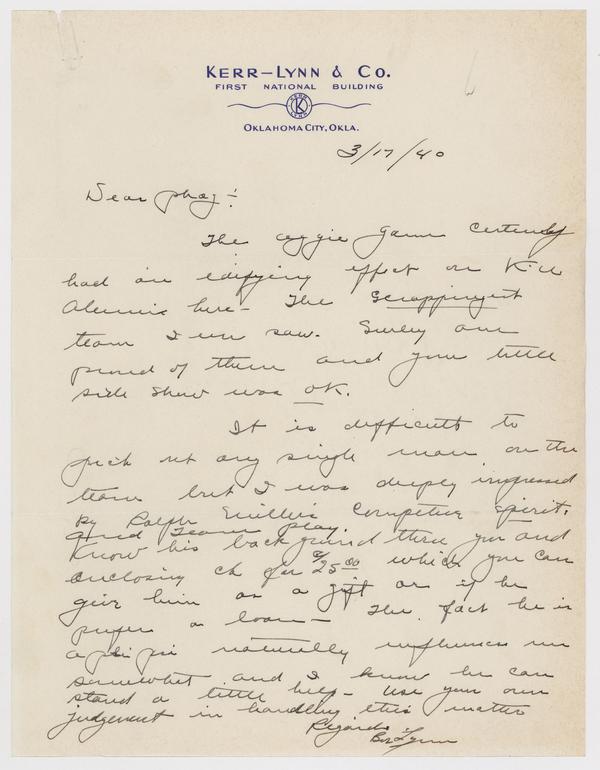 KERR-LYNN & CO.
FIRST NATIONAL BUILDING
KERR
K
LYNN
OKLAHOMA CITY, OKLA.
3/17/40
Dear Phog:
The aggie Game certainly
had an edifying effect on K.U
Alumni here - The Scrappingest
team I ever saw. Surely am
proud of them and your little
side show was OK.
It is difficult to
pick out any single man on the
team but I was deeply impressed
by Ralph Competive Spirit.
and Team play.
Know his back ground thru you and
enclosing ck for $25.00 which you can
give him as a gift or if he
prefer a loan - The fact he is
a phi psi naturally influences me
somewhat and I know he can
stand a little help - Use your own
judgement in handling this matter
Regards
Lynn